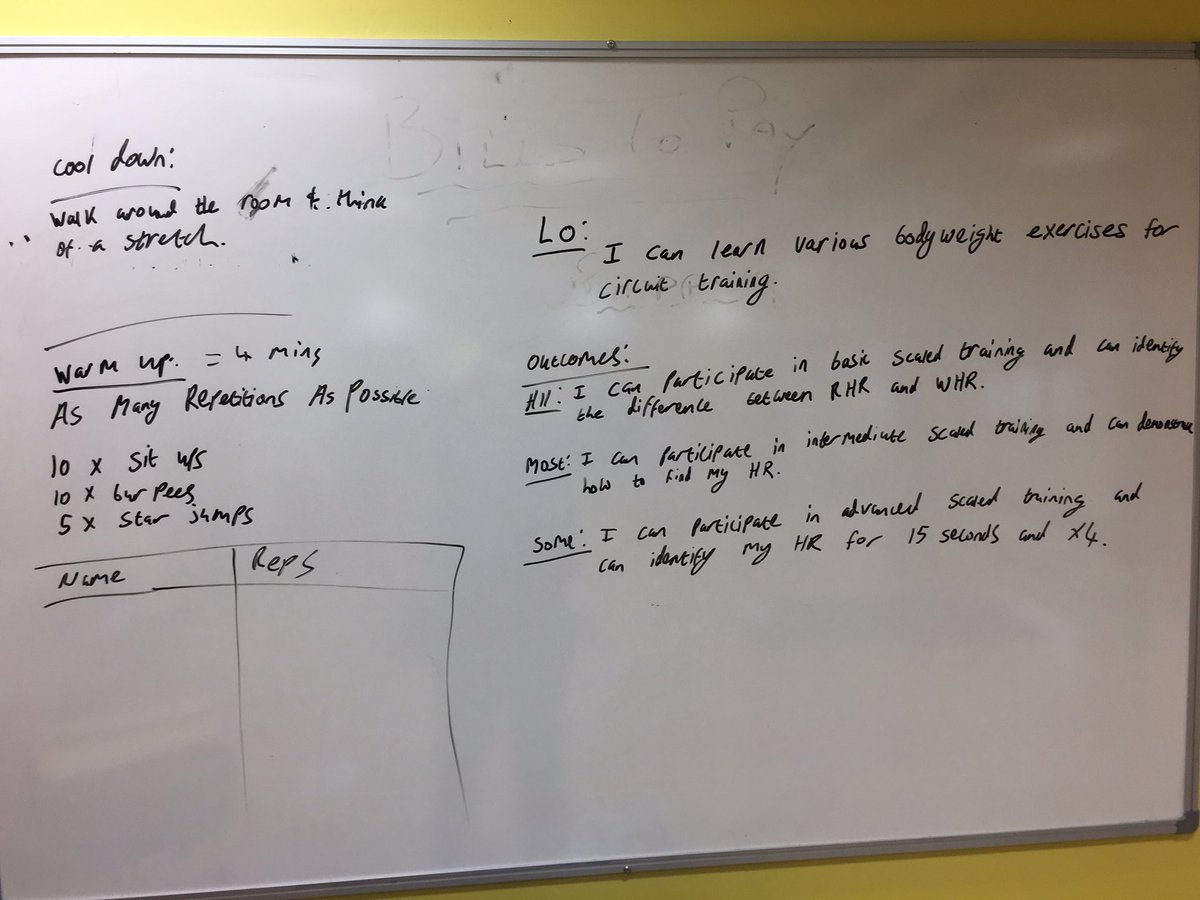 Bills to Pay
Cool down:
Walk around the room & think
of a stretch.
Warm up: = 4 mins
As Many Repetitions As Possible
10 x sit ups
10 x burpees
5 x star jumps
Name Reps
LO:
I can learn various bodyweight exercises for
circuit training.
Outcomes:
All: I can participate in basic scaled training and can identify
the difference between RHR and WHR.
Most: I can participate in intermediate scaled training and can demonstrate
how to find my HR.
Some: I can participate in advanced scaled training and
can identify my HR for 15 seconds and x4.